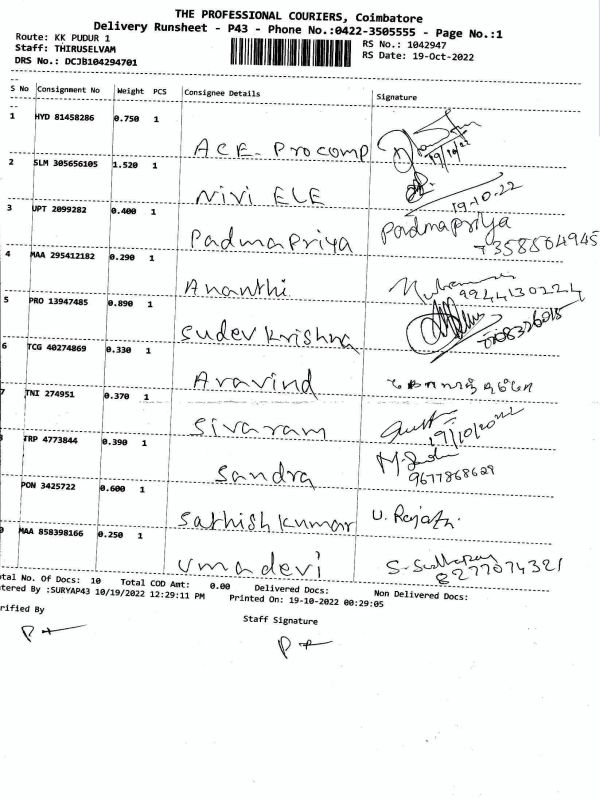 THE PROFESSIONAL COURIERS, Coimbatore
Delivery Runsheet - P43 - Phone No.:0422-3505555 - Page No.:1
Route: KK PUDUR 1 RS No.: 1042947
Staff: THIRUSELVAM RS Date: 19-Oct-2022
DRS No.: DCJB104294701
S No Consignment No Weight PCS Consignee Details Signature
1 HYD 81458286 0.750 1 ACE Procomp 19/10/22
2 SLM 305656105 1.520 1 NIVI ELE 19-10-22
3 UPT 2099282 0.400 1 Padmapriya Padmapriya
4 MAA 295412182 0.290 1 Ananthi 9244130224
5 PRO 13947485 0.890 1 sudev krishna
6 TCG 40274869 0.330 1 Aravind
7 TNI 274951 0.370 1 sivaram 19/10/2022
TRP 4773844 0.390 1 sandra 9677868629
PON 3425722 0.600 1 sathish kumar
MAA 858398166 0.250 1 umadevi 8277074321
tal No. Of Docs: 10 Total COD Amt: 0.00 Delivered Docs: Non Delivered Docs:
tered By :SURYAP43 10/19/2022 12:29:11 PM Printed On: 19-10-2022 00:29:05
rified By Staff Signature